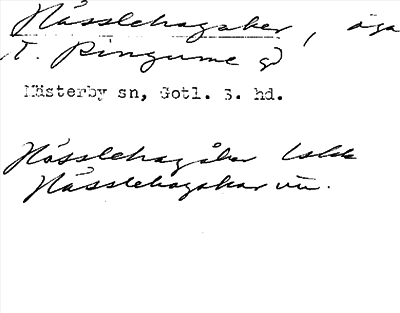 Hässlehagaker, äga
t. Ringume gd
Mästerby sn, Gotl. s. hd.
Hässlehagåker
Hässlehagakar